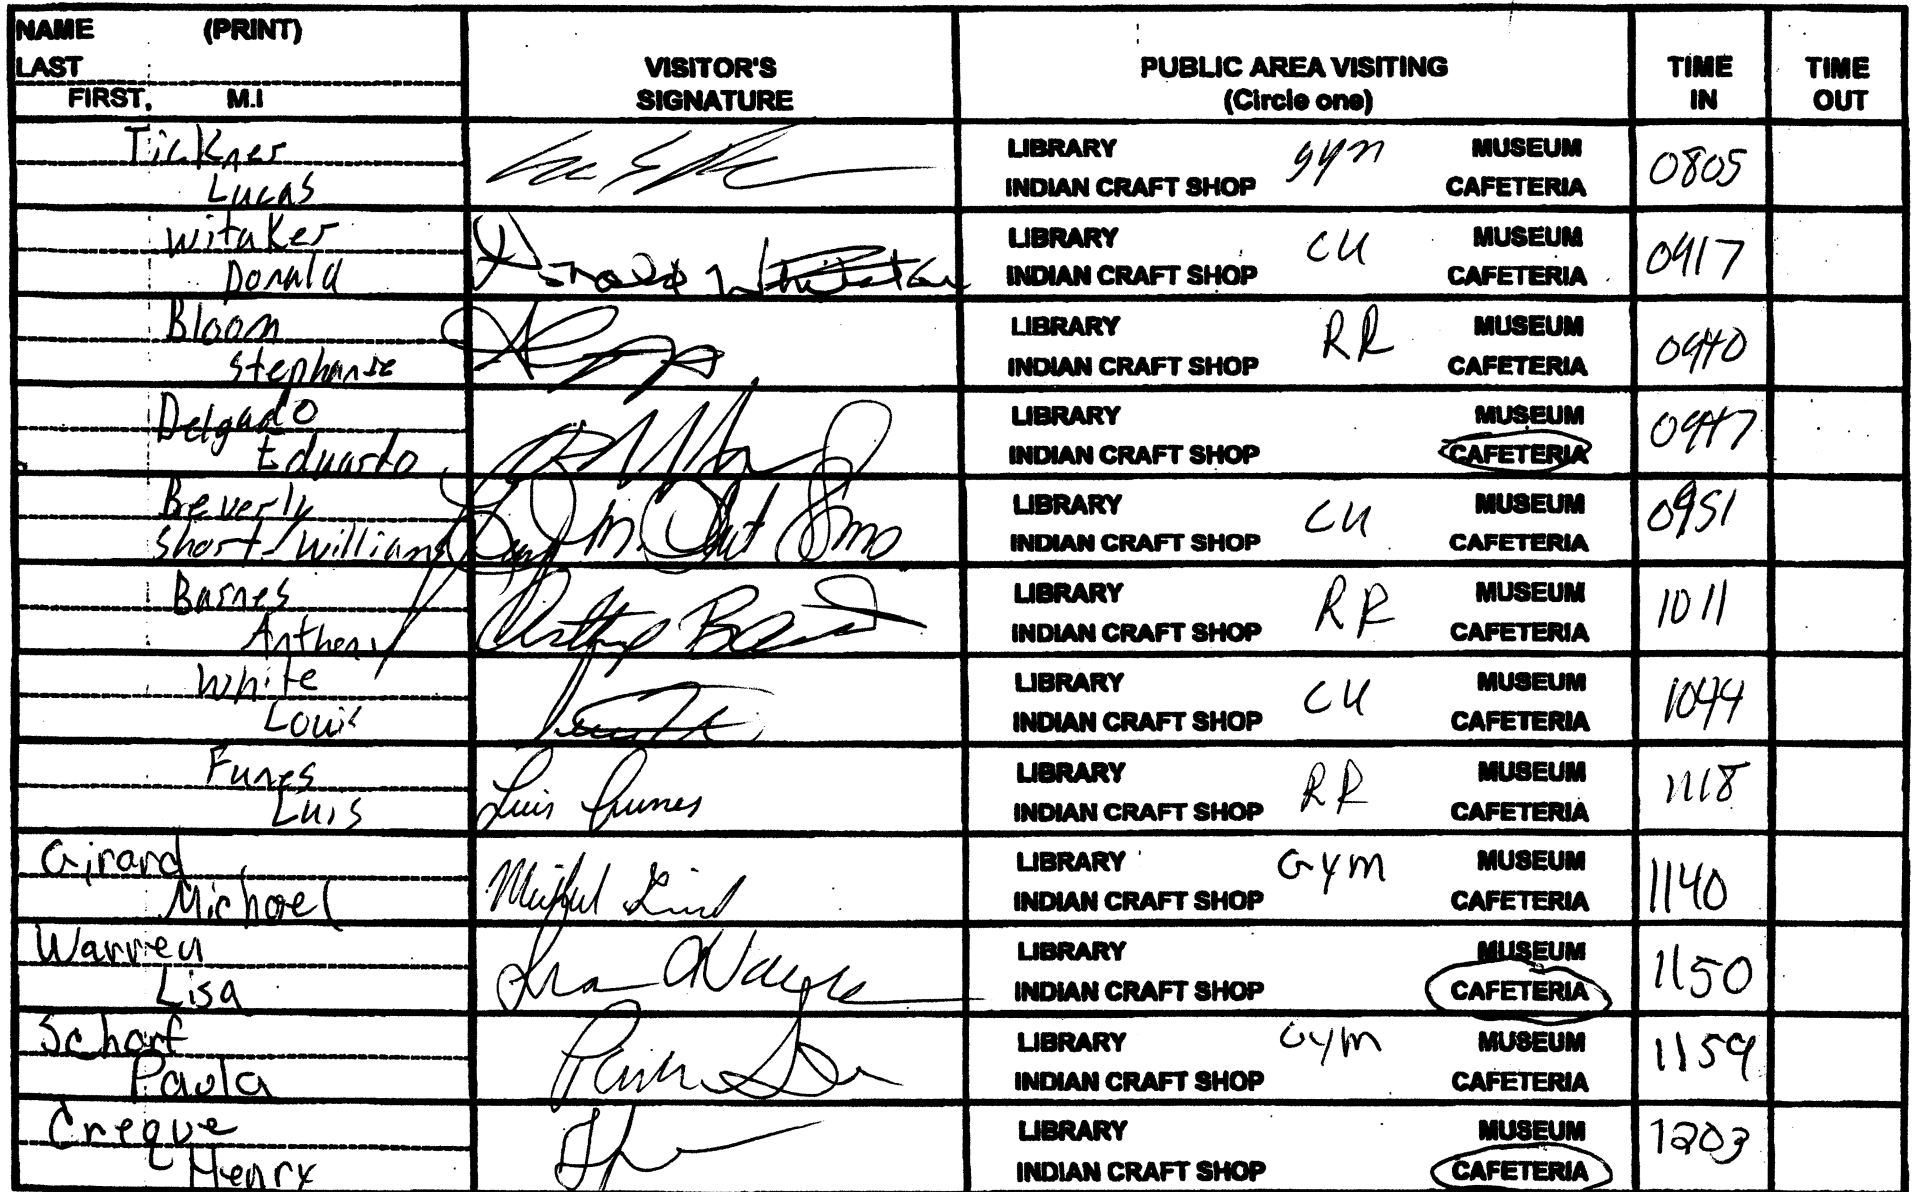 NAME (PRINT)
LAST
FIRST, M.I
VISITOR'S
SIGNATURE
PUBLIC AREA VISITING
(Circle one)
TIME
IN
TIME
OUT
Tickner
Lucas
LIBRARY gym MUSEUM
INDIAN CRAFT SHOP CAFETERIA
0805
Witaker
Donald
LIBRARY CU MUSEUM
INDIAN CRAFT SHOP CAFETERIA
0917
Bloom
Stephanie
LIBRARY RR MUSEUM
INDIAN CRAFT SHOP CAFETERIA
0940
Delgado
Eduardo
LIBRARY MUSEUM
INDIAN CRAFT SHOP CAFETERIA
0947
Beverly
Short-Williams
LIBRARY CU MUSEUM
INDIAN CRAFT SHOP CAFETERIA
0951
Barnes
Anthony
LIBRARY RR MUSEUM
INDIAN CRAFT SHOP CAFETERIA
1011
White
Louis
LIBRARY CU MUSEUM
INDIAN CRAFT SHOP CAFETERIA
1044
Funes
Luis
Luis Funes
LIBRARY RR MUSEUM
INDIAN CRAFT SHOP CAFETERIA
1118
Girard
Michael
LIBRARY Gym MUSEUM
INDIAN CRAFT SHOP CAFETERIA
1140
Warren
Lisa
LIBRARY MUSEUM
INDIAN CRAFT SHOP CAFETERIA
1150
Scharf
Paula
LIBRARY Gym MUSEUM
INDIAN CRAFT SHOP CAFETERIA
1159
Creque
Henry
LIBRARY MUSEUM
INDIAN CRAFT SHOP CAFETERIA
1203